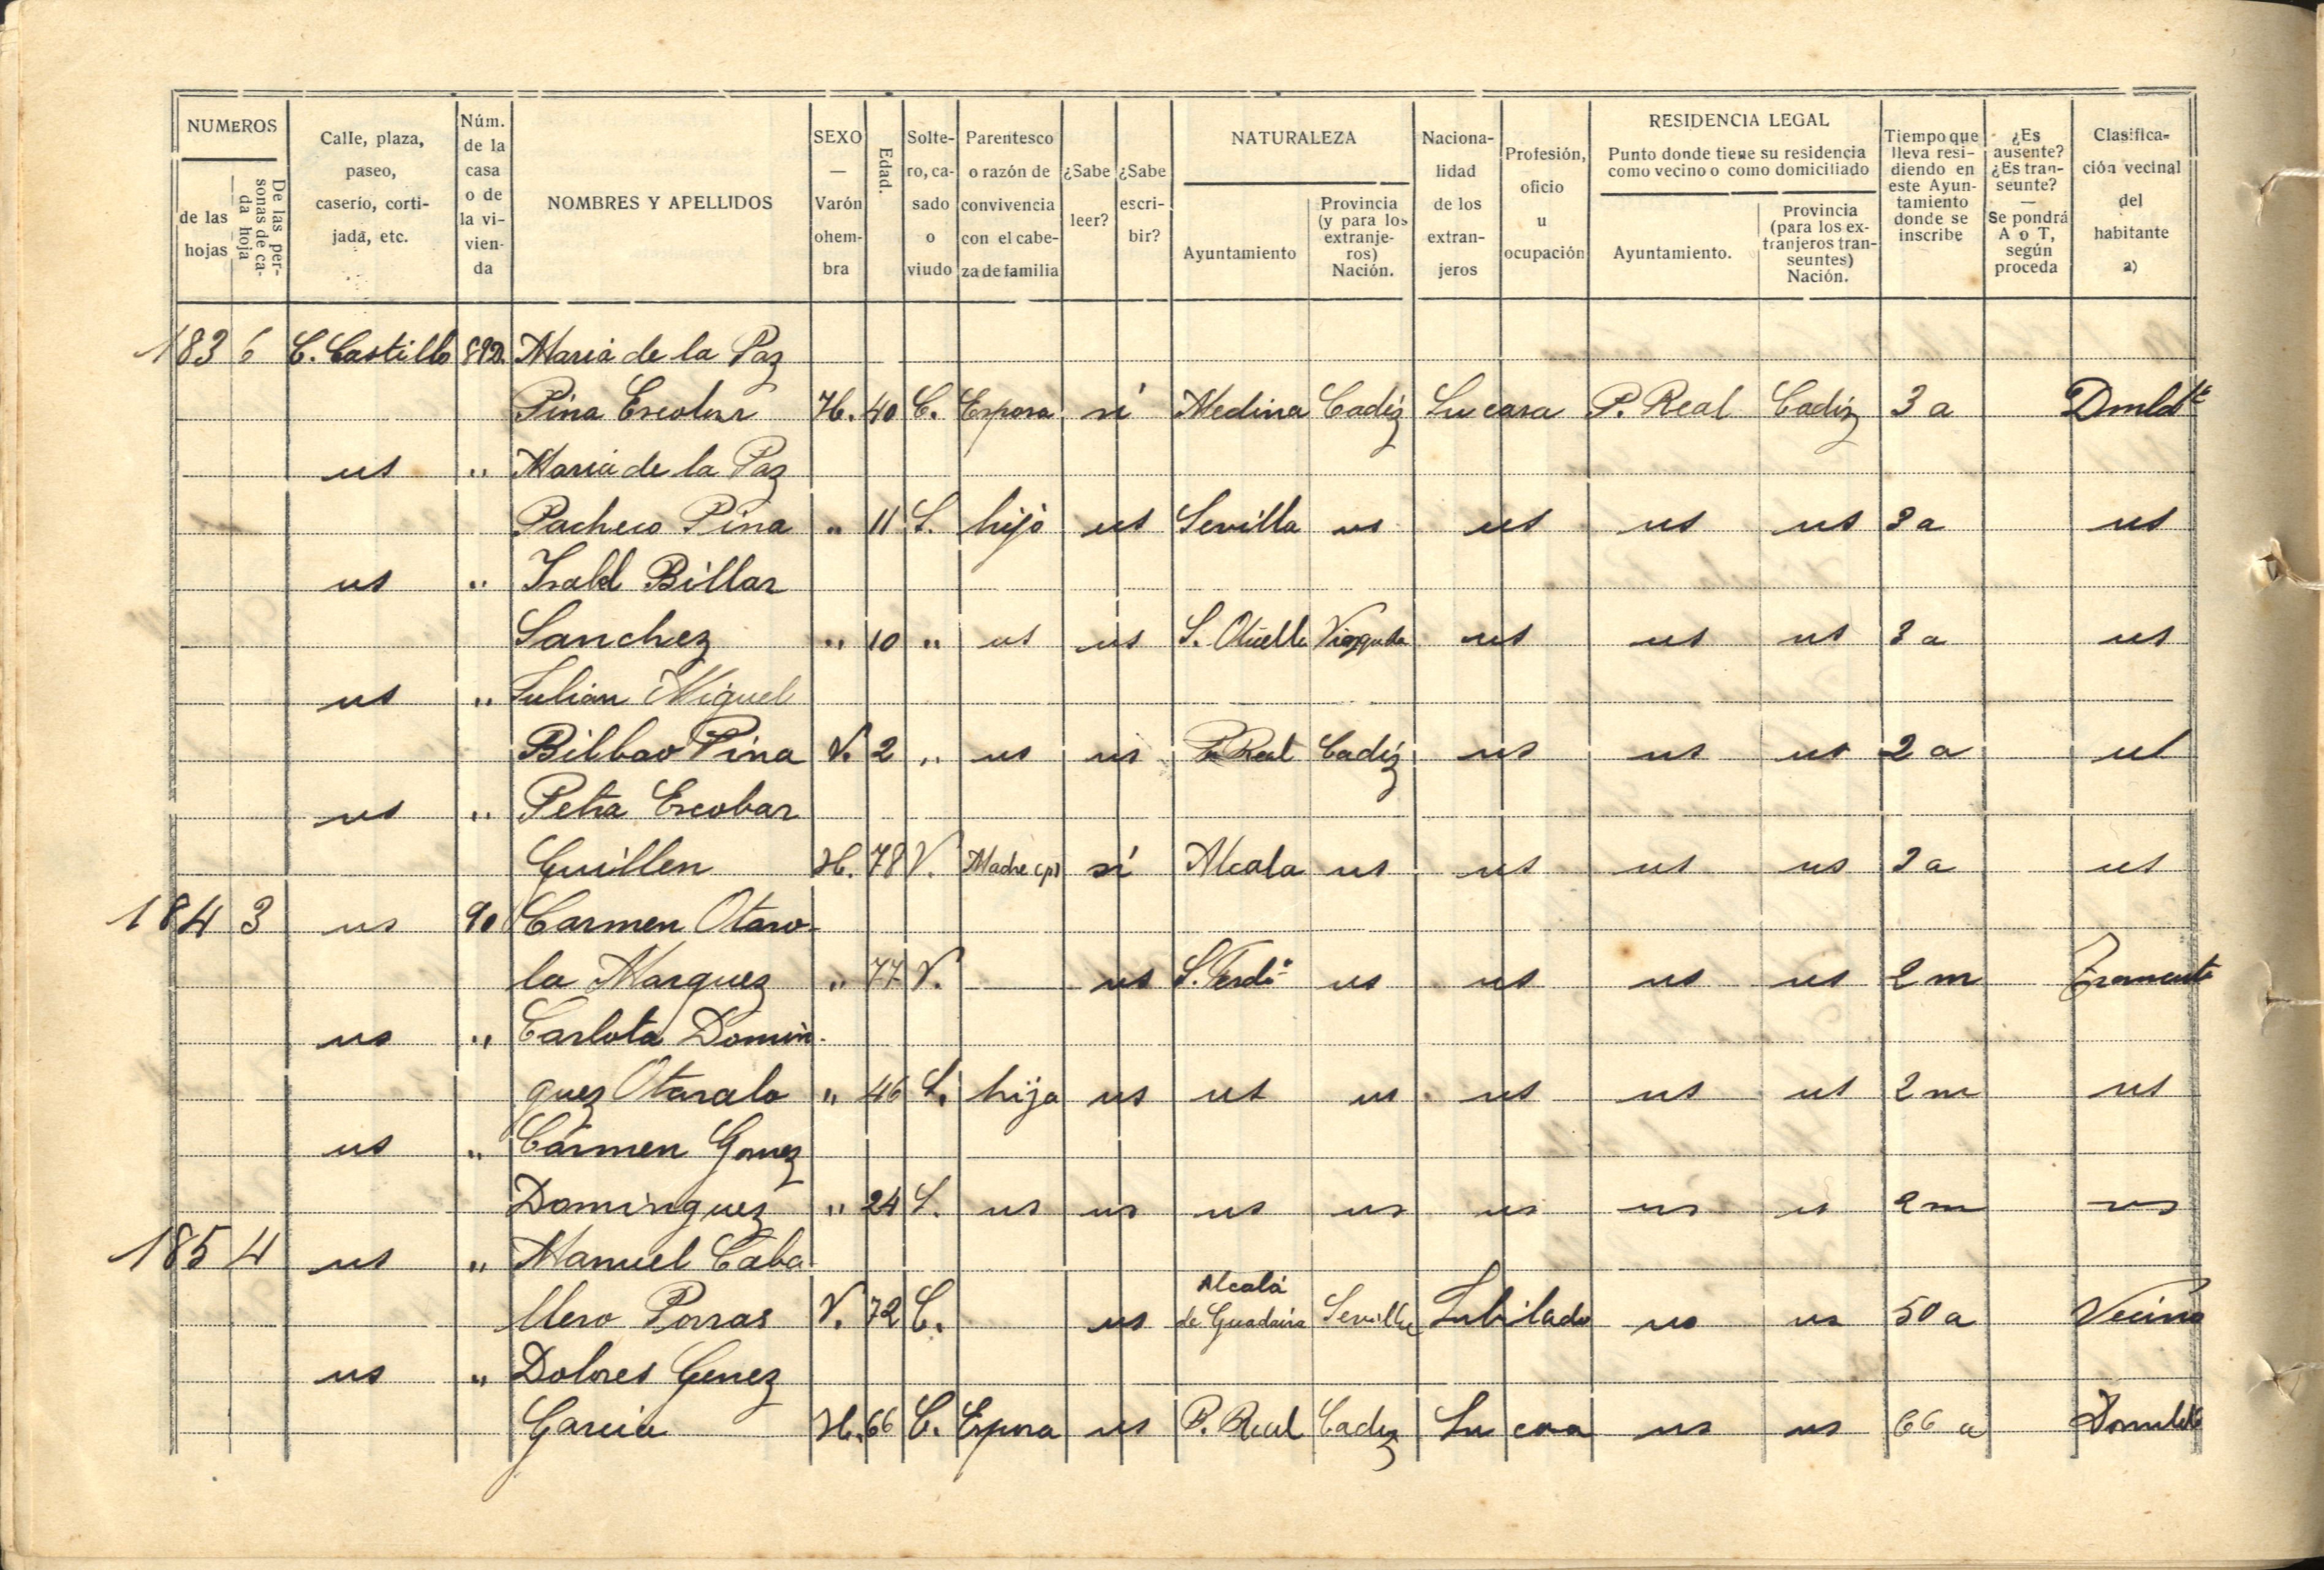 NUMEROS
de las hojas
De las personas de cada hoja
Calle, plaza, paseo, caserío, cortijada, etc.
Núm. de la casa o de la vivienda
NOMBRES Y APELLIDOS
SEXO — Varón ohembra
Edad.
Soltero, casado o viudo
Parentesco o razón de convivencia con el cabeza de familia
¿Sabe leer?
¿Sabe escribir?
NATURALEZA
Ayuntamiento
Provincia (y para los extranjeros) Nación.
Nacionalidad de los extranjeros
Profesión, oficio u ocupación
RESIDENCIA LEGAL
Punto donde tiene su residencia como vecino o como domiciliado
Ayuntamiento.
Provincia (para los extranjeros transeuntes) Nación.
Tiempo que lleva residiendo en este Ayuntamiento donde se inscribe
¿Es ausente? ¿Es transeunte? — Se pondrá A o T, según proceda
Clasificación vecinal del habitante a)
183 6 C. Castillo Maria de la Paz
Pina Escobar H. 40 C. Esposa si Medina Cadiz Su casa P. Real Cadiz 3 a
us " Maria de la Paz
Pacheco Pina " 11 S. hijo us Sevilla us us us us 3 a us
us " Isabel Billar
Sanchez " 10 " us us us us us 3 a us
us " Julian Miguel
Bilbao Pina V. 2 " us us P. Real Cadiz us us us 2 a us
us " Petra Escobar
Guillen H. 78 V. Madre (p) si Alcala us us us us 3 a us
184 3 us 90 Carmen Otaro-
la Marquez " 77 V. — us S. Ferdº us us us us 2 m
us " Carlota Domin-
guez Otarala " 46 S. hija us us us us us us 2 m us
us " Carmen Gomez
Dominguez " 24 S. us us us us us us us 2 m us
185 4 us " Manuel Caba-
llero Porras V. 72 C. us Alcalá de Guadaira Sevilla Jubilado us us 50 a Vecino
us " Dolores Genez
Garcia H. 66 C. Esposa us P. Real Cadiz Su casa us us 66 a